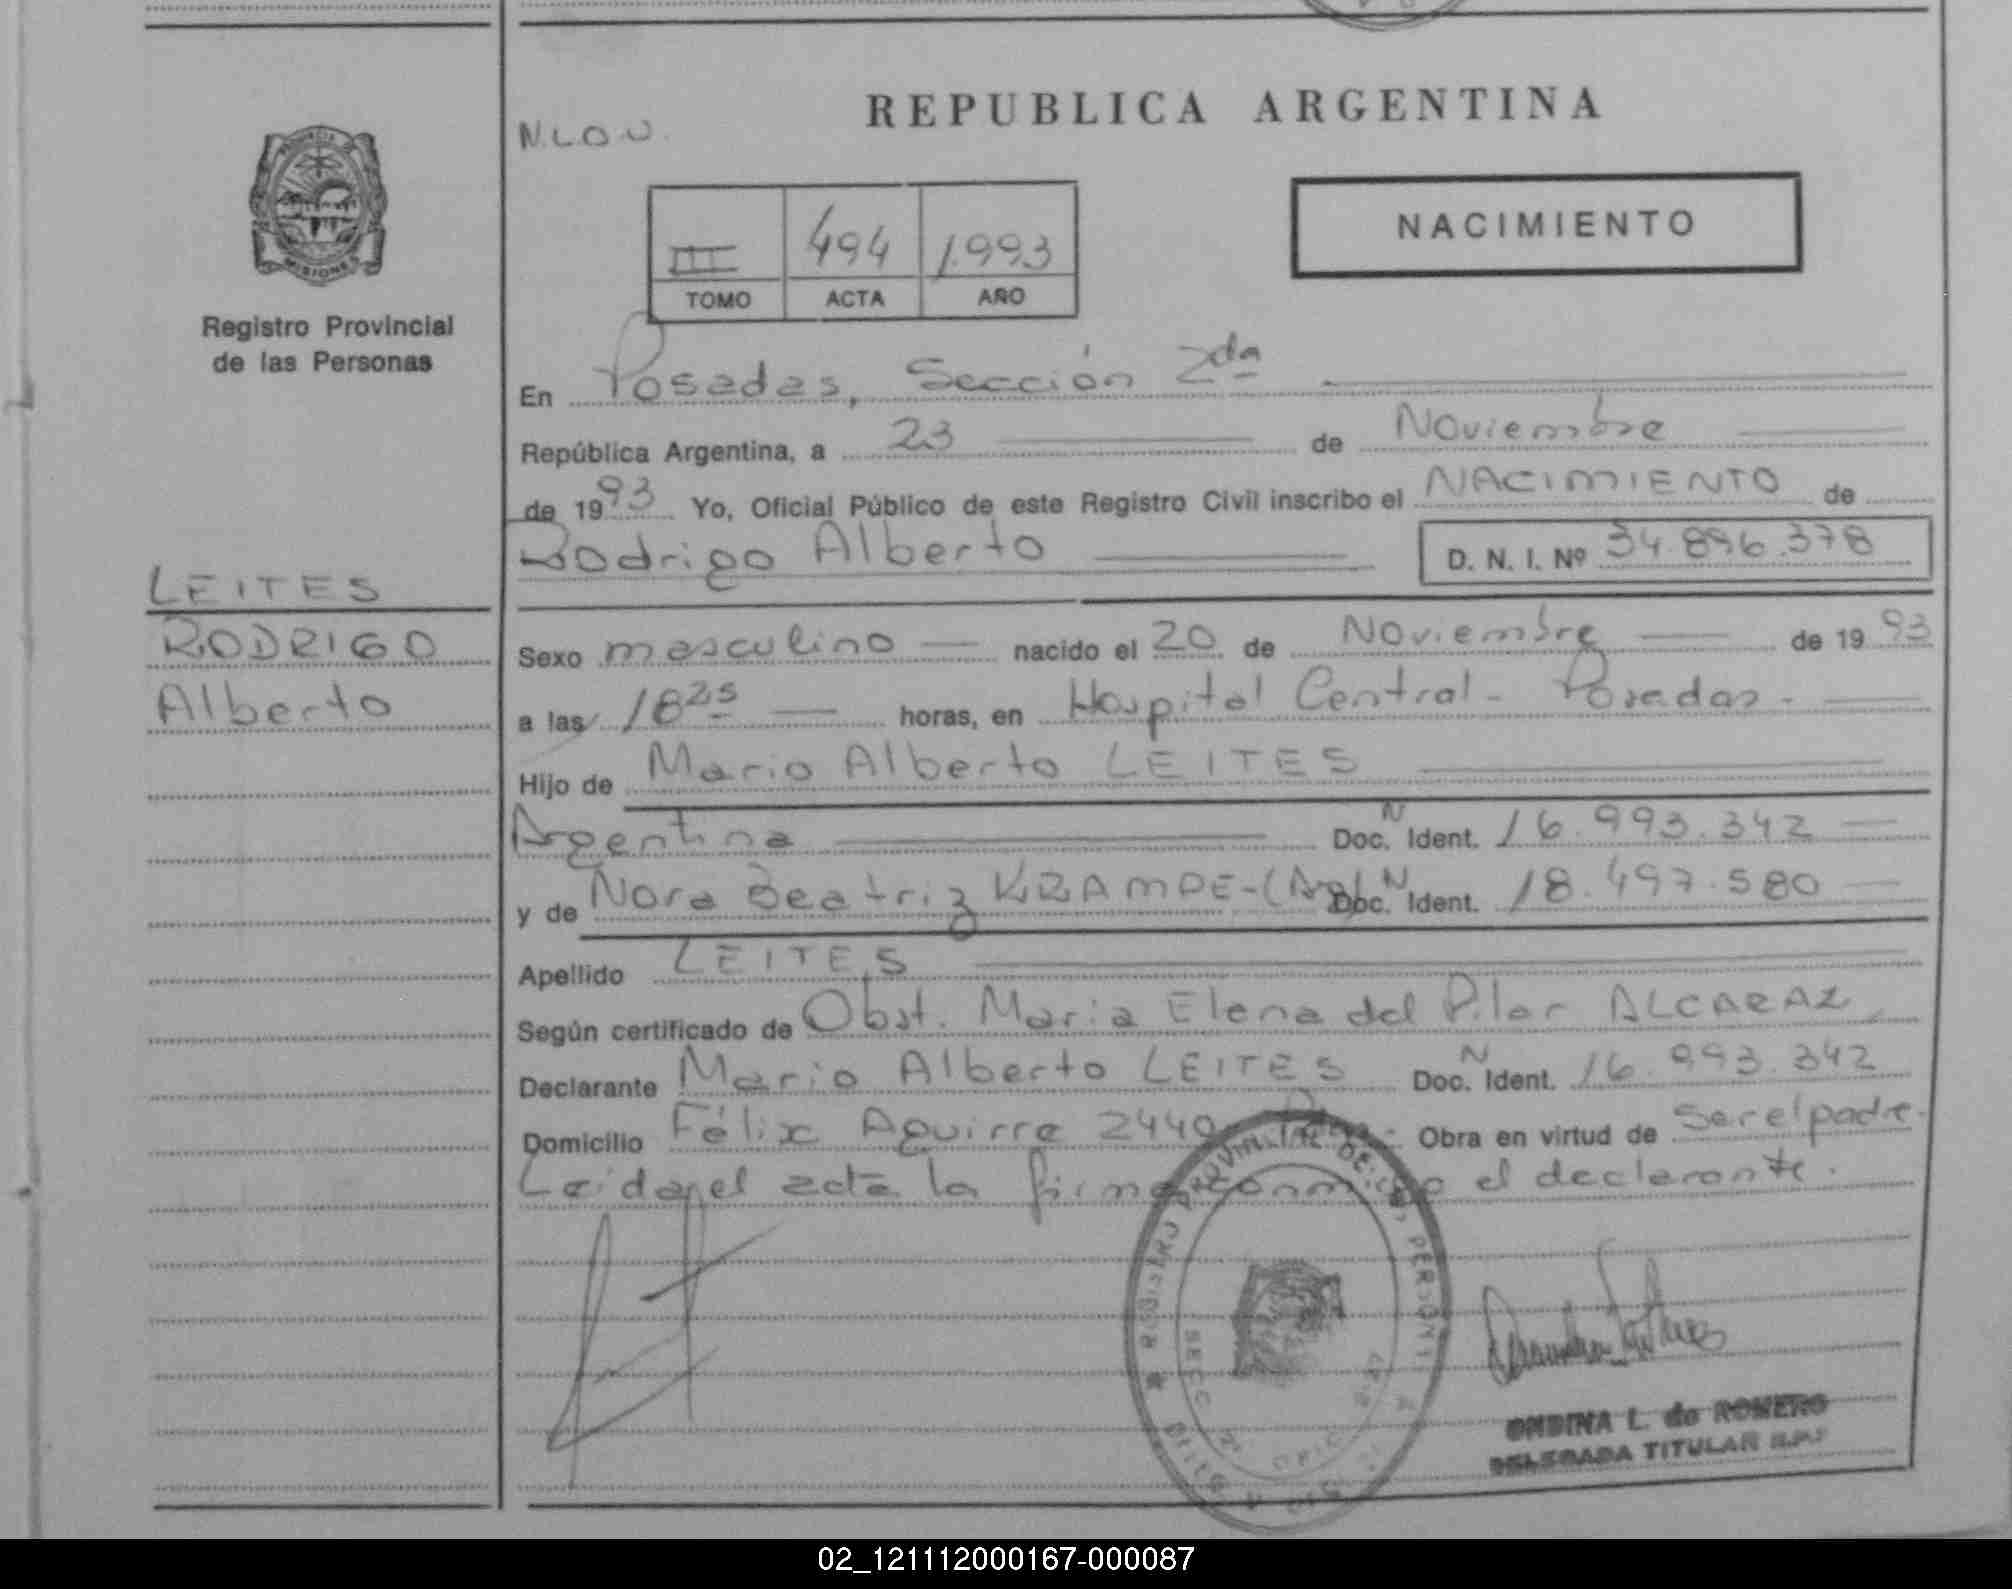 REPUBLICA ARGENTINA
N.L.O.U.
NACIMIENTO
III 494 1.993
TOMO ACTA AÑO
PROVINCIA DE
MISIONES
Registro Provincial
de las Personas
LEITES
RODRIGO
Alberto
En Posadas, Sección 2da
República Argentina, a 23 de Noviembre
de 1993 Yo, Oficial Público de este Registro Civil inscribo el NACIMIENTO de
Rodrigo Alberto D. N. I. Nº 34.896.378
Sexo masculino nacido el 20 de Noviembre de 1993
a las 18 25 horas, en Hospital Central - Posadas -
Hijo de Mario Alberto LEITES
Argentina Doc. N Ident. 16.993.342
y de Nora Beatriz KRAMPE - (Arg) Doc. N Ident. 18.497.580
Apellido LEITES
Según certificado de Obst. Maria Elena del Pilar ALCARAZ
Declarante Mario Alberto LEITES Doc. N Ident. 16.993.342
Domicilio Félix Aguirre 2440 Obra en virtud de ser el padre.
Leida el acta la firma conmigo el declarante.
REGISTRO PROVINCIAL DE LAS PERSONAS
SECC
ONDINA L. de ROMERO
DELEGADA TITULAR R.P.P
02_121112000167-000087